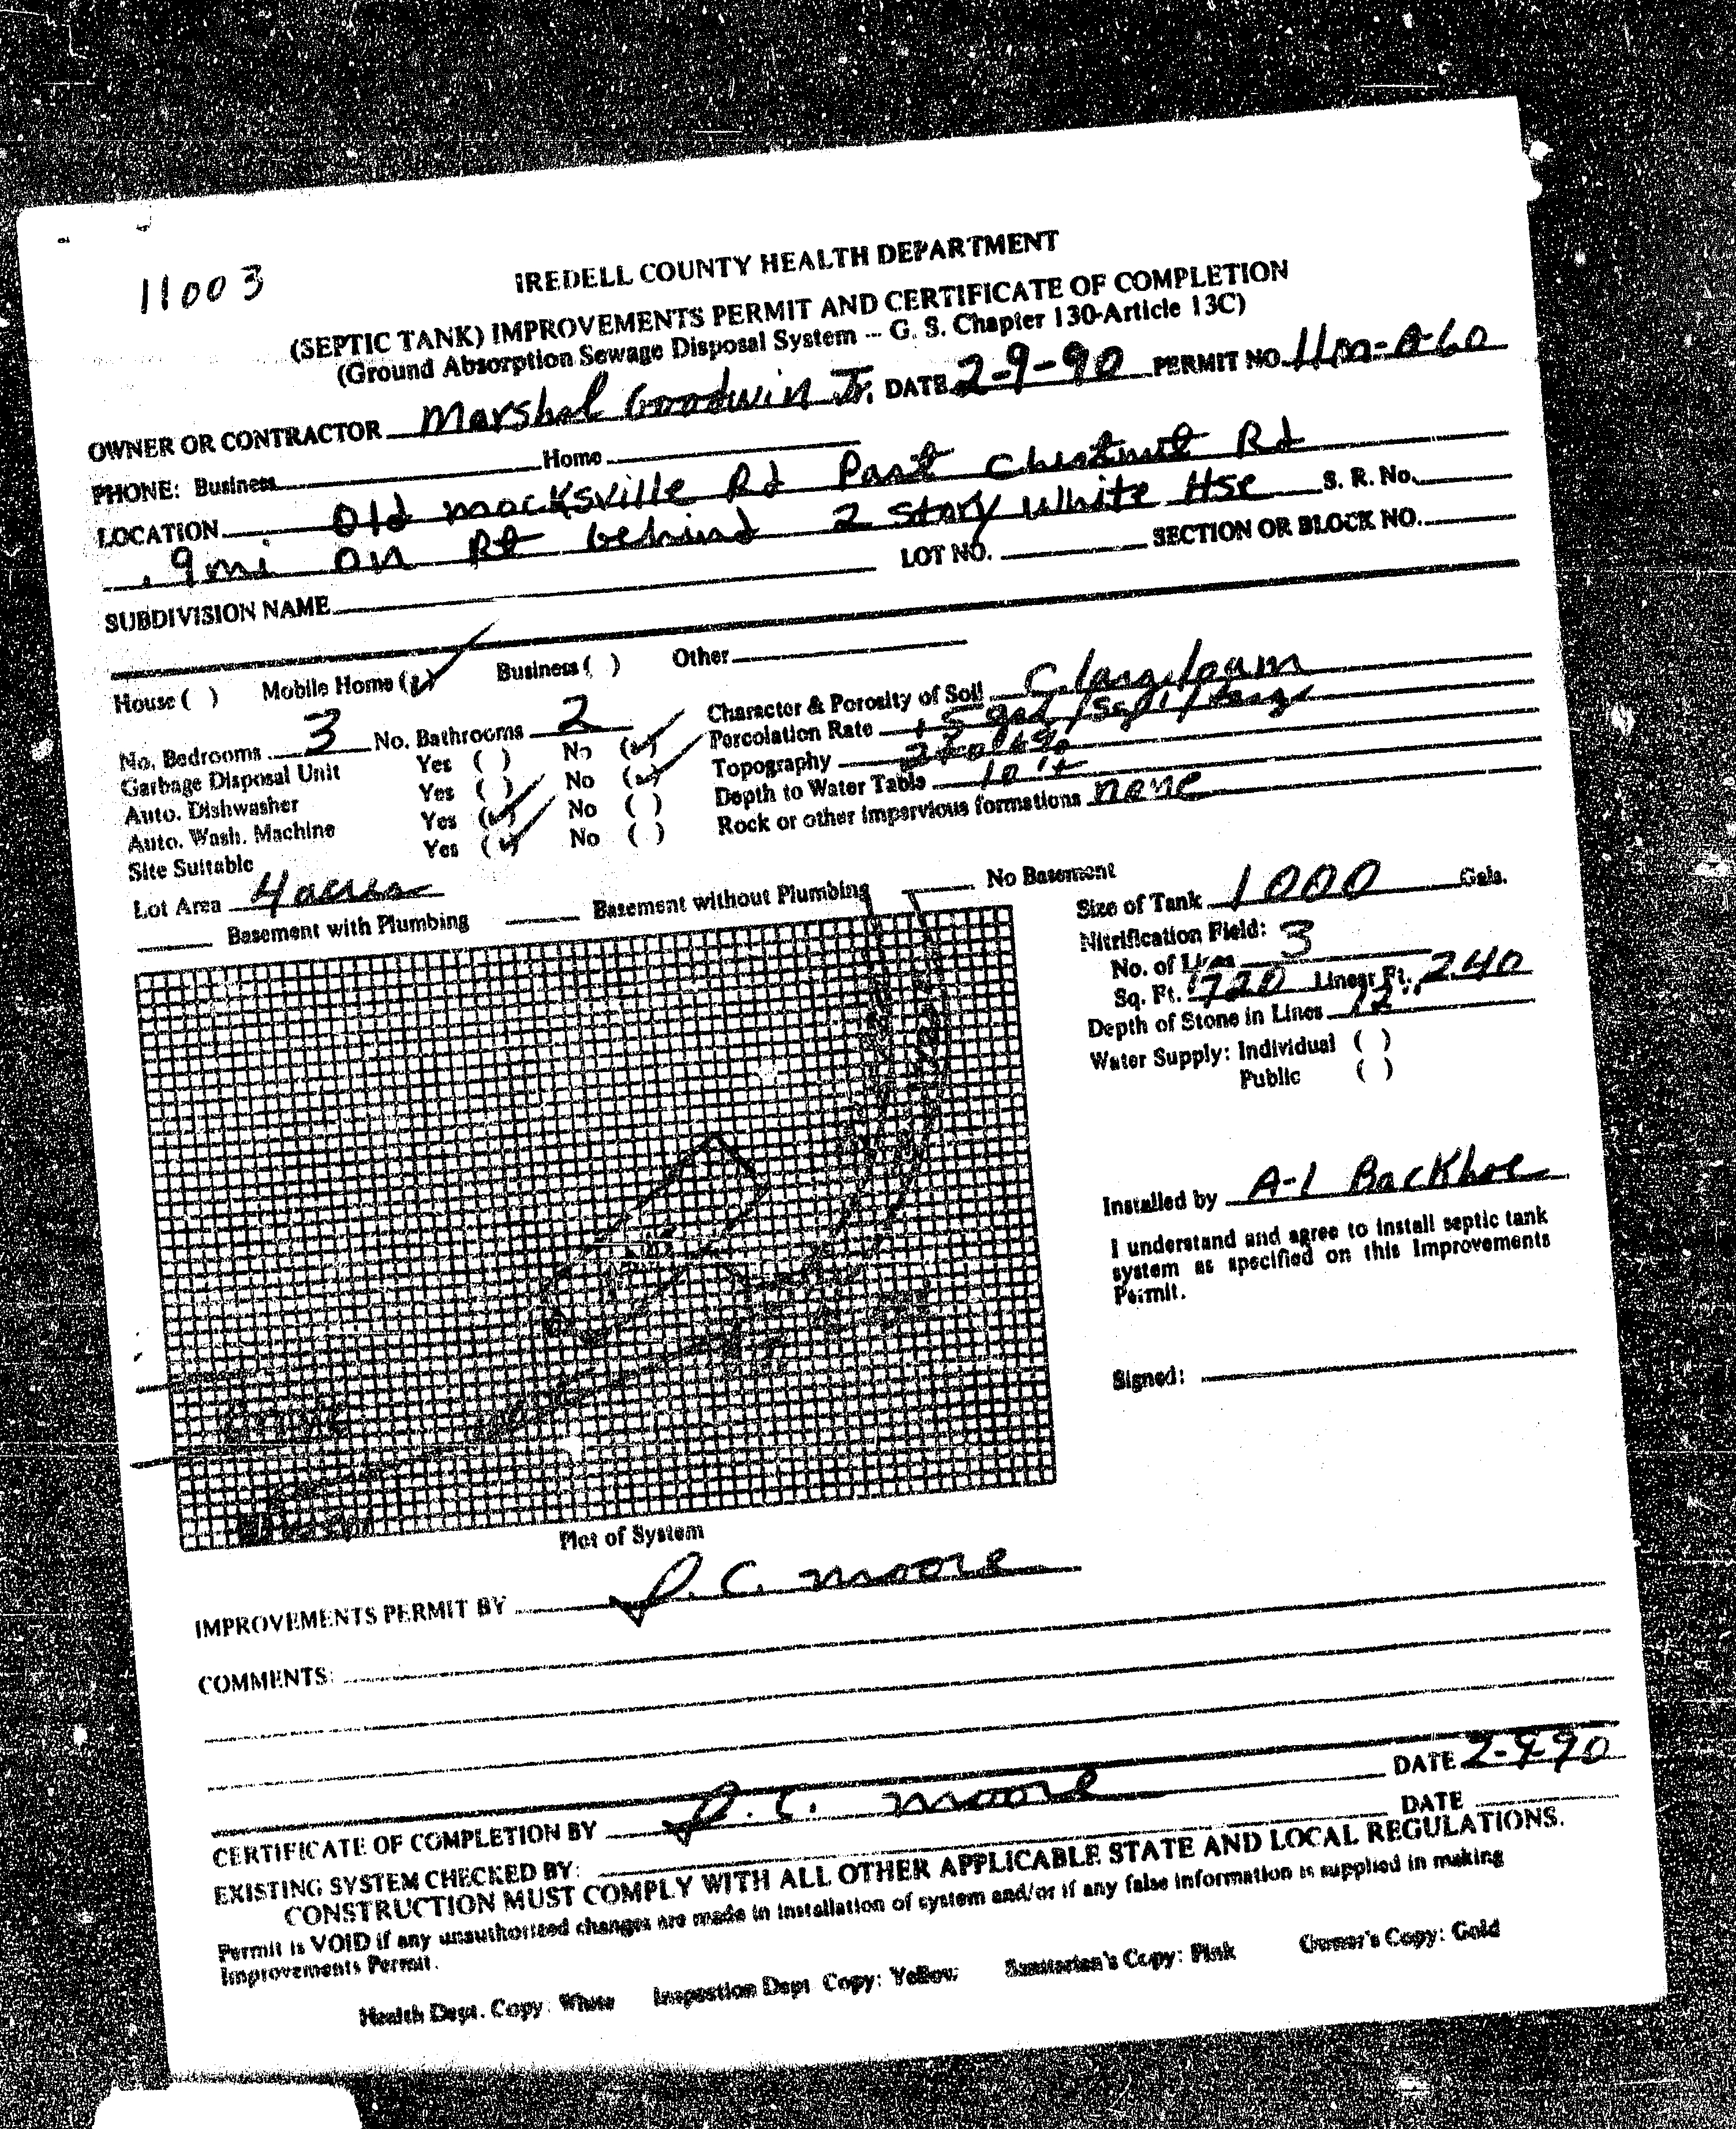 11003
IREDELL COUNTY HEALTH DEPARTMENT
(SEPTIC TANK) IMPROVEMENTS PERMIT AND CERTIFICATE OF COMPLETION
(Ground Absorption Sewage Disposal System -- G. S. Chapter 130-Article 13C)
OWNER OR CONTRACTOR Marshal Goodwin Jr. DATE 2-9-90 PERMIT NO. 11m-A-60
PHONE: Business Home
LOCATION Old mocksville Rd Past Chestnut Rd
.9 mi on Rt behind 2 story White Hse S. R. No.
SUBDIVISION NAME LOT NO. SECTION OR BLOCK NO.
House ( ) Mobile Home (✓) Business ( ) Other
No. Bedrooms 3 No. Bathrooms 2
Garbage Disposal Unit Yes ( ) No (✓)
Auto. Dishwasher Yes ( ) No (✓)
Auto. Wash. Machine Yes (✓) No ( )
Site Suitable Yes (✓) No ( )
Lot Area 4 acres
Character & Porosity of Soil Clay loam
Percolation Rate
Topography
Depth to Water Table 10'+
Rock or other impervious formations none
Basement with Plumbing Basement without Plumbing No Basement
Size of Tank 1000 Gals.
Nitrification Field:
No. of Lines 3
Sq. Ft. 720 Linear Ft. 240
Depth of Stone in Lines 12"
Water Supply: Individual ( )
Public ( )
Installed by A-1 Backhoe
I understand and agree to install septic tank
system as specified on this Improvements
Permit.
Signed:
Plot of System
IMPROVEMENTS PERMIT BY J.C. Moore
COMMENTS:
CERTIFICATE OF COMPLETION BY J.C. Moore DATE 2-9-90
EXISTING SYSTEM CHECKED BY: DATE
CONSTRUCTION MUST COMPLY WITH ALL OTHER APPLICABLE STATE AND LOCAL REGULATIONS.
Permit is VOID if any unauthorized changes are made in installation of system and/or if any false information is supplied in making
Improvements Permit.
Health Dept. Copy: White Inspection Dept. Copy: Yellow Sanitarian's Copy: Pink Owner's Copy: Gold